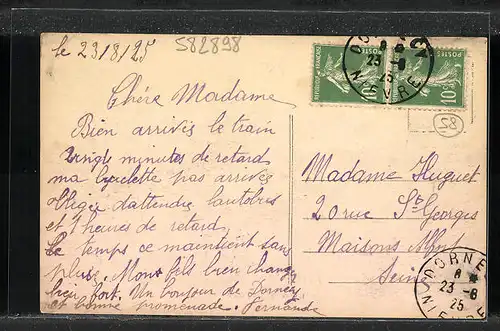 le 23/8/25
582898
Chère Madame
Bien arrivés le train
vingt minutes de retard
ma byclette pas arrivée
obligée d'attendre l'autobus
et 1 heures de retard
Le temps ce maintient sans
pluie. Mon fils bien changé
bien fort. Un bonjour de Dornecy
et bonne promenade. Fernande
Madame Huguet
20 rue St Georges
Maisons Alfort
Seine
POSTES
10c
POSTES
10c
NIEVRE
23 -8
25
DORNE
23 -8
25
NIEVRE
58